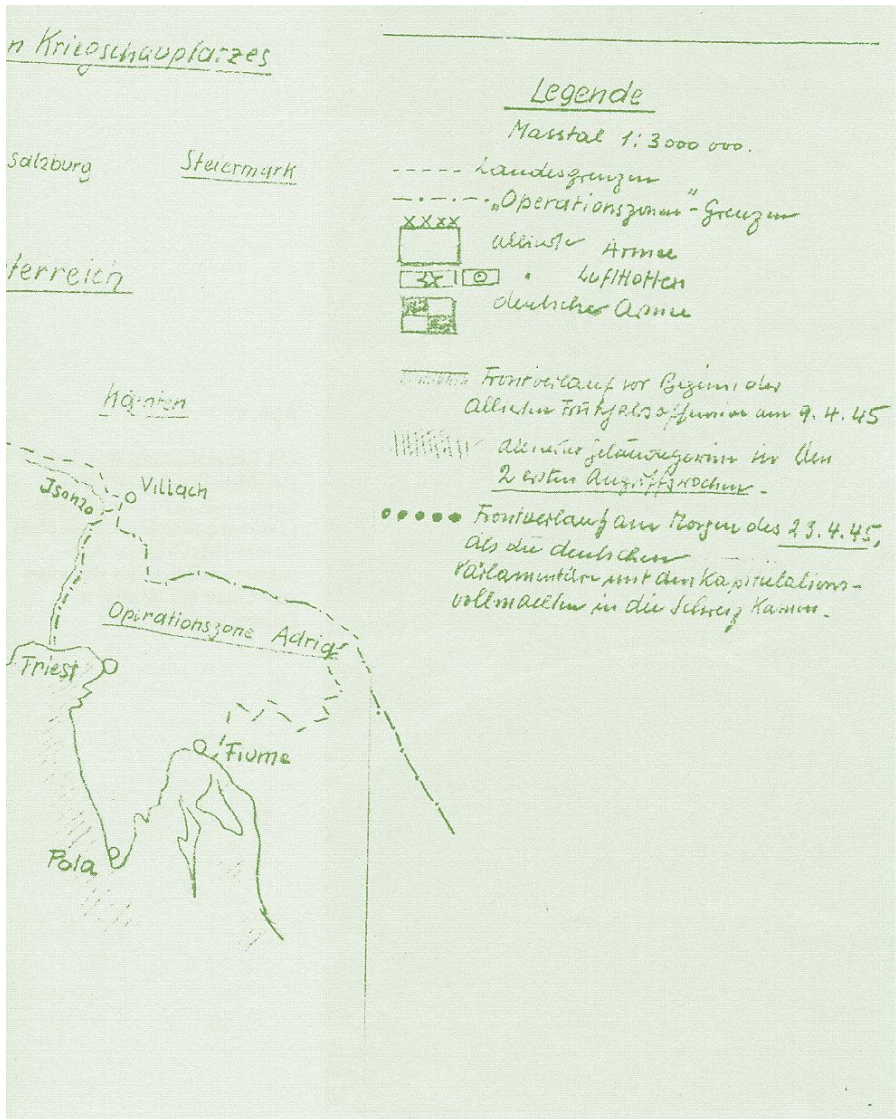 n Kriegschauplatzes
Salzburg Steiermark
terreich
Kärnten
Isonzo
Villach
Operationszone Adria
Triest
Fiume
Pola
Legende
Masstal 1:3 000 000.
Landesgrenzen
"Operationszonen"-Grenzen
alliierte Armee
" Luftflotten
deutsche Armee
Frontverlauf vor Beginn der
alliierten Frühjahrsoffensive am 9.4.45
alliierter Geländegewinn in den
2 ersten Angriffswochen.
Frontverlauf am Morgen des 23.4.45,
als die deutschen
Parlamentäre mit den Kapitulations-
vollmachten in die Schweiz kamen.